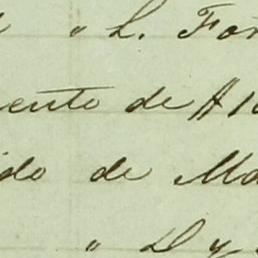 " L. For
ento de Al
ido de Ma
" D y